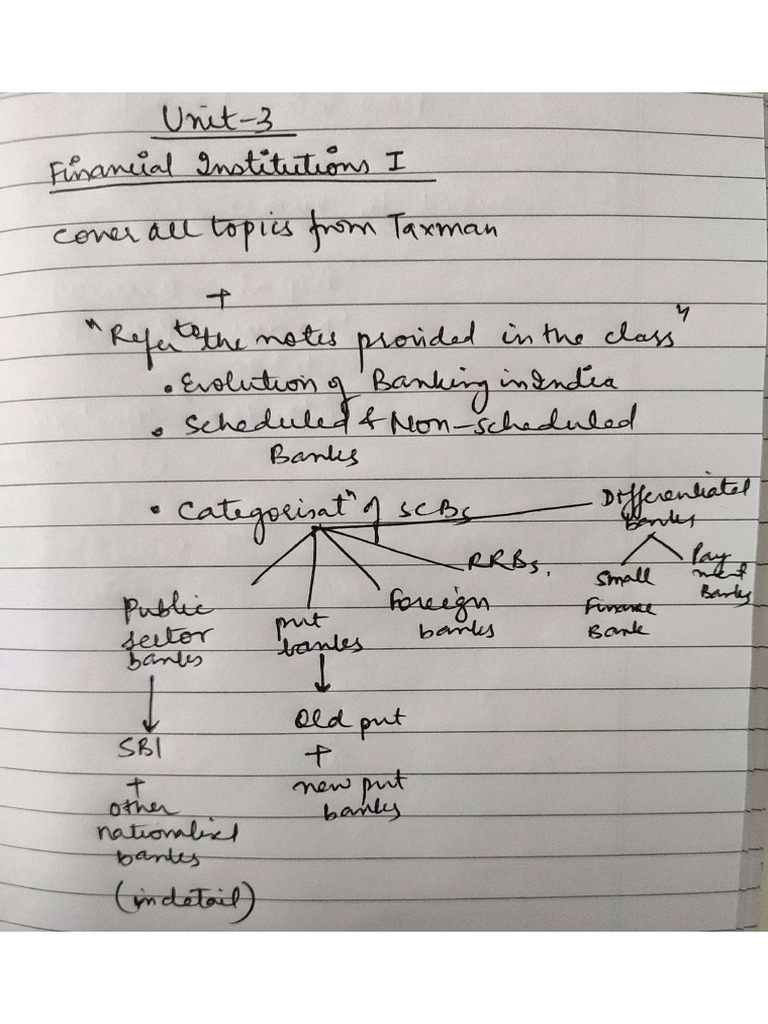 Unit-3
Financial Institutions I
cover all topics from Taxman
+
"Refer to the notes provided in the class"
• Evolution of Banking in India
• Scheduled & Non-scheduled
Banks
• Categorisatⁿ of SCBs
Differentiated
Banks
RRBs.
Small
Finance
Bank
Pay
ment
Banks
Public
sector
banks
pvt
banks
Foreign
banks
SBI
+
other
nationalised
banks
(in detail)
Old pvt
+
new pvt
banks